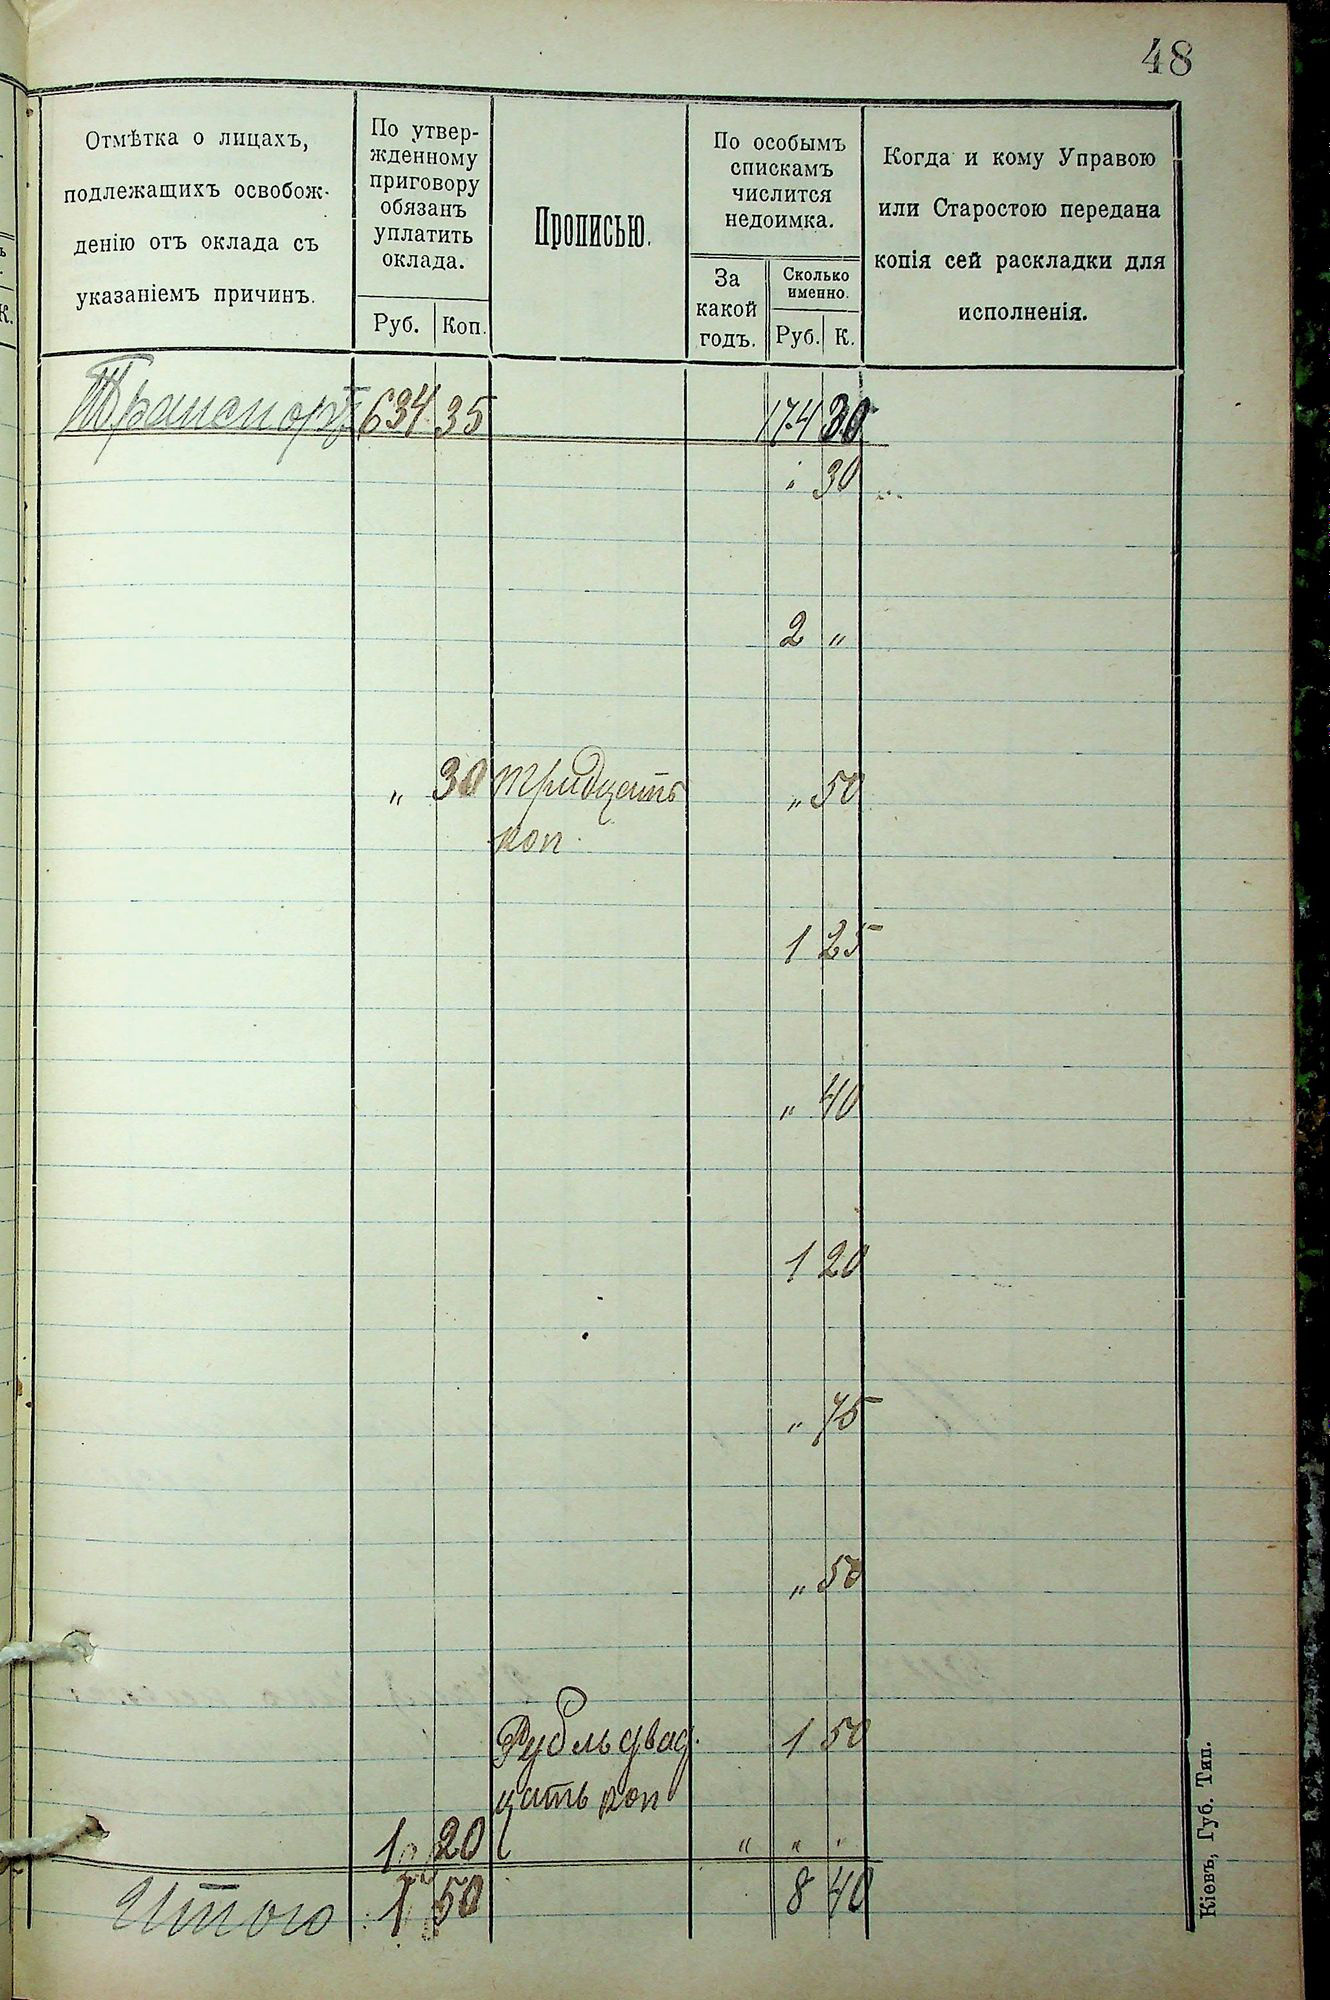 48
Отмѣтка о лицахъ,
подлежащихъ освобож-
денію отъ оклада съ
указаніемъ причинъ.
По утвер-
жденному
приговору
обязанъ
уплатить
оклада.
Руб. Коп.
Прописью.
По особымъ
спискамъ
числится
недоимка.
За
какой
годъ.
Сколько
именно.
Руб. К.
Когда и кому Управою
или Старостою передана
копія сей раскладки для
исполненія.
К.
Транспортъ 634 35 174 30
30
2 "
" 30 тридцать " 50
коп.
1 25
" 40
1 20
" 75
" 50
Рубль двад. 1 50
цать коп
1 20 " " "
Итого 1 50 8 40
Кіевъ, Губ. Тип.